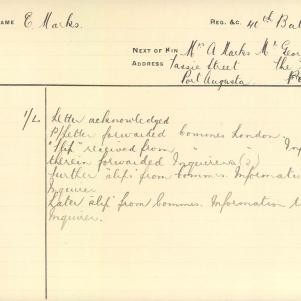 NAME E Marks. REG. &C. 40th Bat
NEXT OF KIN Mrs A Marks Mt Geor
ADDRESS Tassie Street The
Port Augusta
1/L Letter acknowledged
P/letter forwarded Commrs London.
"Slip" received from " " Inf
therein forwarded Inquirers (2)
further "slips" from Commrs. Informatio
Inquirer
Later "slip" from Commrs. Information
Inquirer.